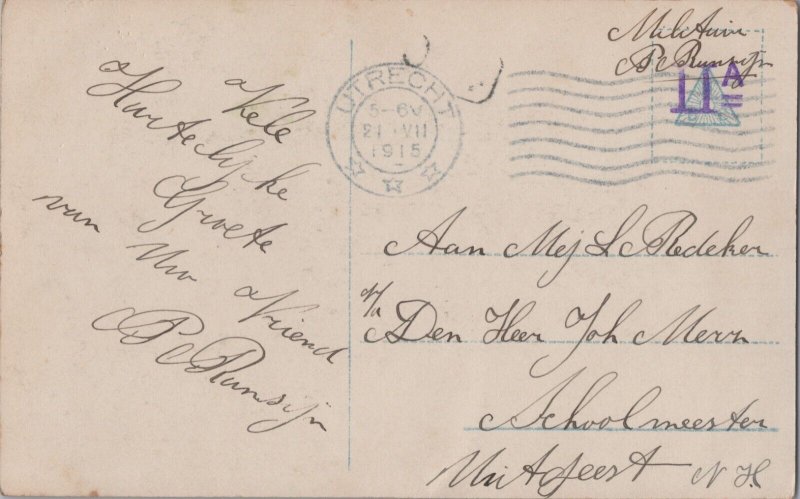 Vele
Hartelijke
Groete
van Uw Vriend
P C Runsijn
UTRECHT
5-6V
21 VII
1915
Militair
P C Runsijn
11 A
Aan Mej L C Redeker
p/a Den Heer Joh Merx
Schoolmeester
Uitgeest N H